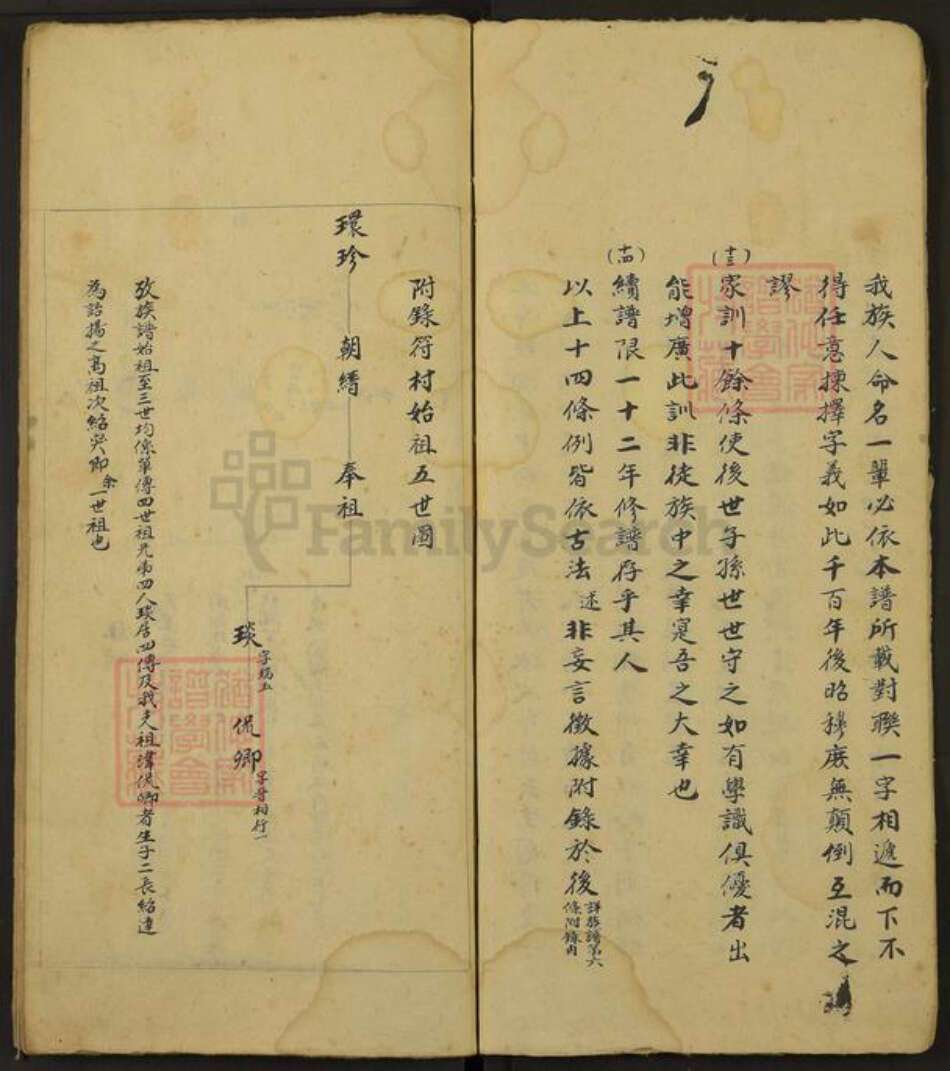 我族人命名一輩必依本譜所載對聯一字相遞而下不
得任意揀擇字義如此千百年後昭穆庶無顛倒互混之
謬
(十三)家訓十餘條使後世子孫世世守之如有學識俱優者出
能增廣此訓非徒族中之幸寔吾之大幸也
(十四)續譜限一十二年修譜存乎其人
以上十四條例皆依古法述非妄言徵據附錄於後詳族譜第六條附錄內
附錄符村始祖五世圖
環珍 朝縉 奉祖
琰 字 侃卿 字晉相行一
攷族譜始祖至三世均係單傳四世祖兄弟四人琰居四傳及我先祖諱侃卿者生子二長紹達
為詒揚之高祖次紹奕即余一世祖也
FamilySearch